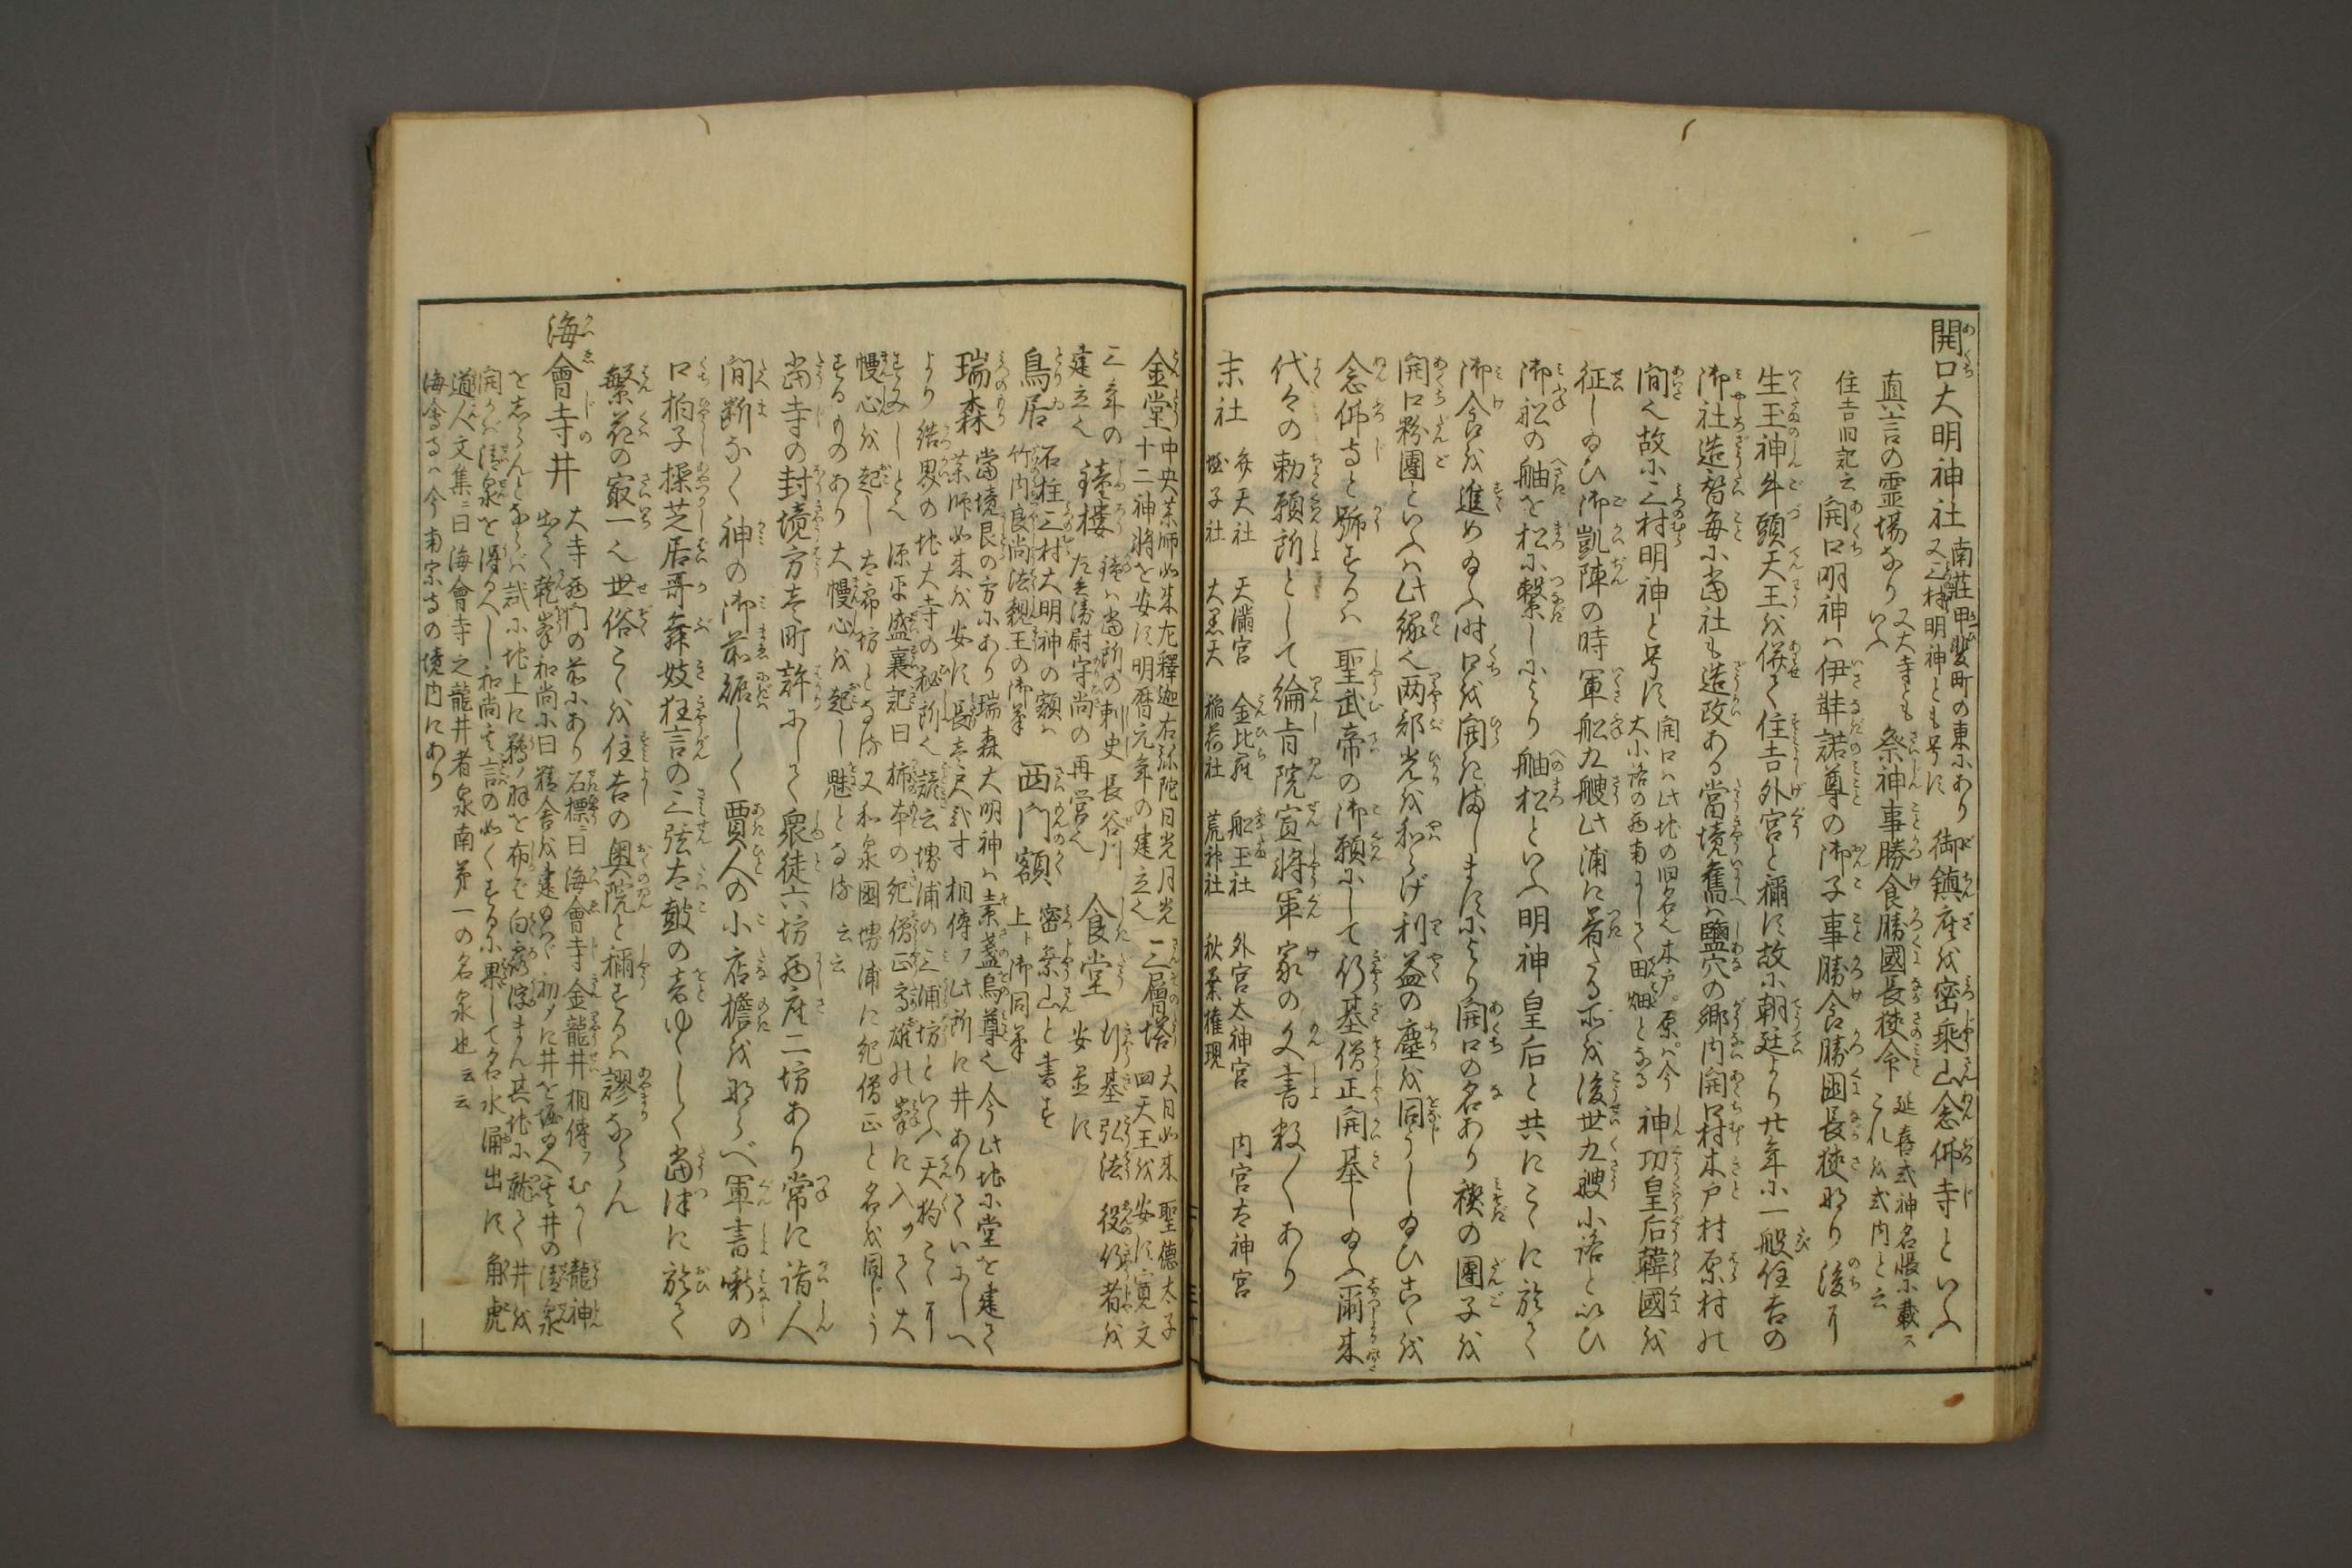 開口大明神社 南莊甲斐町の東にあり又三村明神とも号す 御鎮座を密乘山念佛寺といふ
真言の霊場なり 又大寺ともいふ 祭神事勝食勝國長狹命 延喜式神名帳に載スこれを式内と云
住吉旧記云 開口明神は伊弉諾尊の御子事勝食勝國長狹なり後に
生玉神牛頭天王を併せて住吉外宮と稱す故に朝廷より廿年に一般住吉の
御社造替毎に當社も造改ある當境舊は鹽穴の郷内開口村木戸村原村の
間也故に三村明神と号す 開口は此地の旧名也木戸原は今大小路の西南にして田畑となる 神功皇后韓國を
征し給ひ御凱陣の時軍船九艘此浦に着たる所を後世九艘小路といひ
御船の舳を松に繫しにより舳松といふ明神皇后と共にこゝに於て
御食を進め給ふ時口を開き給しますにより開口の名あり禊の團子を
開口粉團といふは此縁也两部光を和らげ利益の塵を同うし給ひさく
念佛寺と號するは 聖武帝の御願にして行基僧正開基し給ふ爾来
代々の勅願所として綸旨院宣将軍家の文書数〱あり
末社 弁天社 天滿宮 金比羅 船玉社 外宮太神宮 内宮太神宮
蛭子社 大黒天 稲荷社 荒神社 秋葉権現
金堂 中央薬師如来左釋迦右弥陀日光月光十二神将を安す明暦元年の建立也 三層塔 大日如来四天王を安す寛文 聖德太子
三年の建立也 鐘樓 鐘は當所の刺史長谷川左兵衛尉守尚の再営也 食堂 行基弘法役行者を安置す
鳥居 石柱三村大明神の額は竹内良尚法親王の御筆 西門額 密乗山と書す上ト御同筆
瑞森 當境艮の方にあり瑞森大明神は素盞烏尊也今此地に堂を建て薬師如来を安す長壱尺弐寸相傳フ此所に井ありていにしへ
より結界の地大寺の秘所也諺云堺浦の三浦坊といふ天狗こゝに
すみしとぞ源平盛衰記曰柿本の紀僧正高雄の峯に入ッて大
慢心を起し太郎坊となる又和泉國堺浦に紀僧正と名を同じう
するものあり大慢心を起し魅となる云云
當寺の封境方壱町許にして衆徒六坊西座二坊あり常に詣人
間断なく神の御前賑しく賈人の小店檐をならべ軍書噺の
口拍子操芝居哥舞妓狂言の三弦太鼓の音ゆゝしく當津に於て
繁花の最一也世俗こゝを住吉の奥院と稱するは謬ならん
海會寺井 大寺西門の前にあり石標ニ曰海會寺金龍井相傳フむかし龍神
出て乾峯和尚に曰精舎を建給はゞ初メに井を堀給へ其井の清泉
を志らんとならば試に地上に鵜ノ羽を布ば白露浮まん其地に就て井を
開かば清泉を得給へし和尚其言の如くするに果して名水涌出す 角虎
道人文集ニ曰海會寺之龍井者泉南第一の名泉也云云
海會寺は今南宗寺の境内にあり